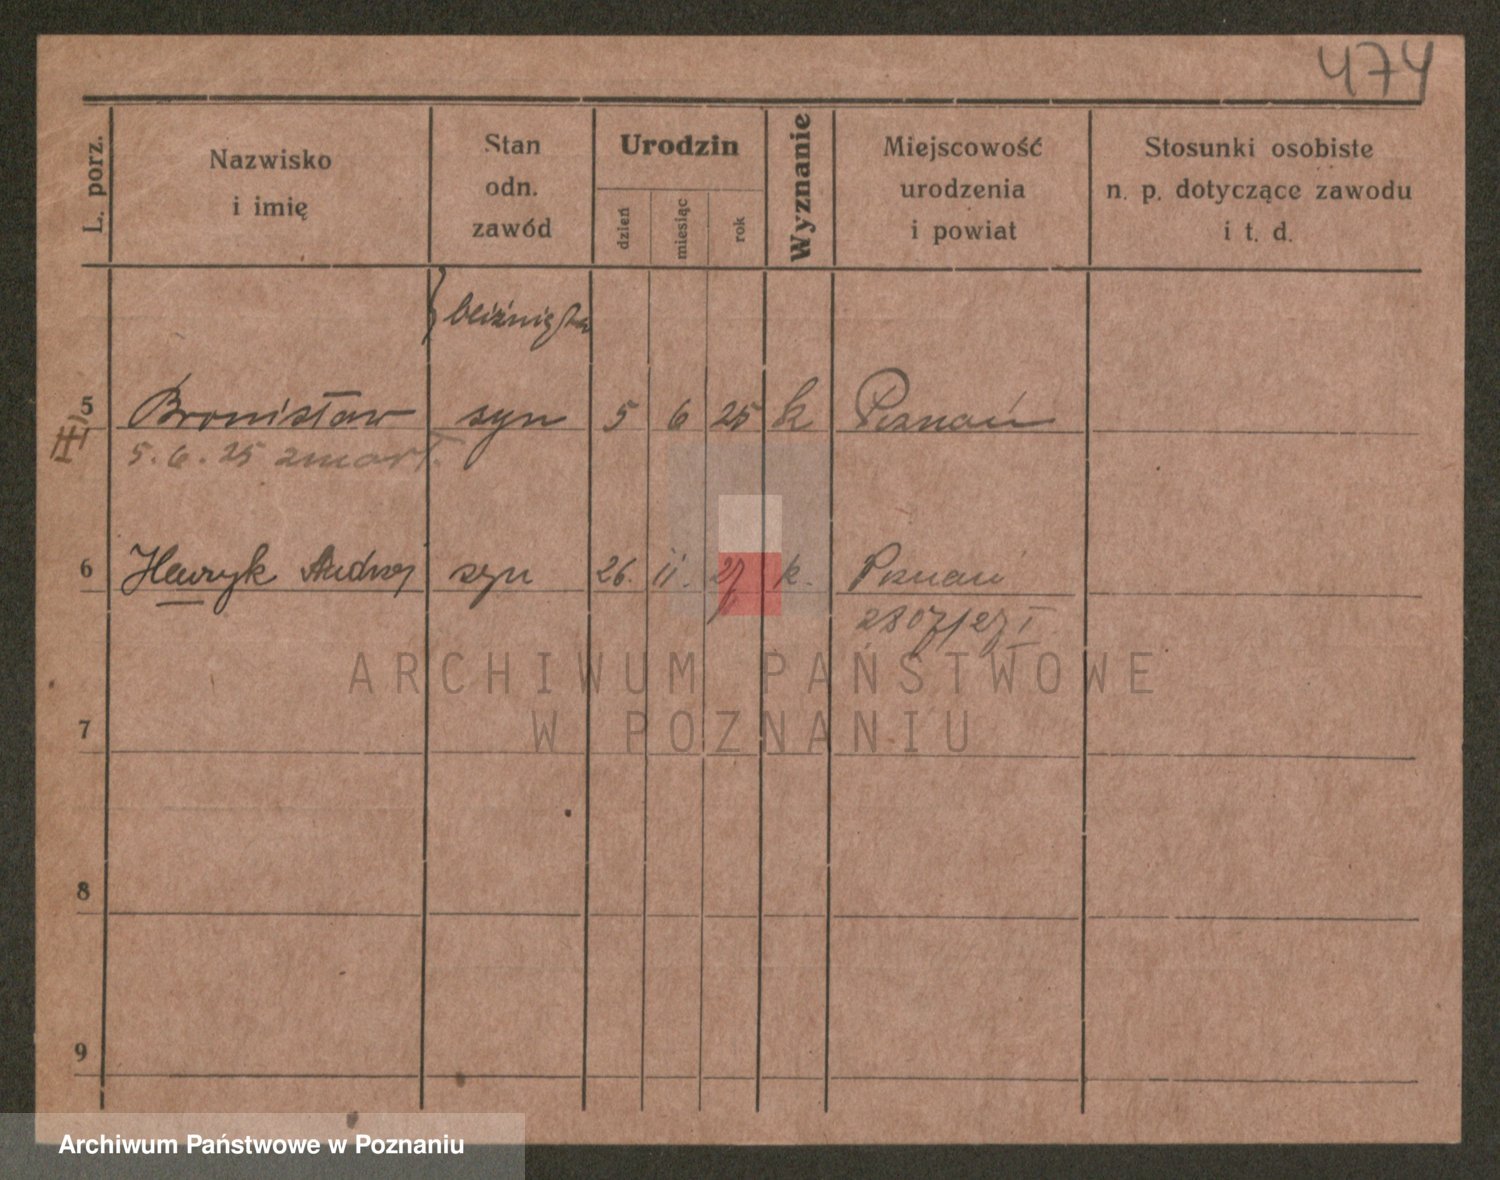 474
L. porz.
Nazwisko
i imię
Stan
odn.
zawód
Urodzin
dzień
miesiąc
rok
Wyznanie
Miejscowość
urodzenia
i powiat
Stosunki osobiste
n. p. dotyczące zawodu
i t. d.
bliźnięta
5 Bronisław syn 5 6 25 k Poznań
III
5.6.25 zmarł.
6 Henryk Andrzej syn 26. 11. 27 k. Poznań
2807/27 I
ARCHIWUM PAŃSTWOWE
W POZNANIU
7
8
9
Archiwum Państwowe w Poznaniu